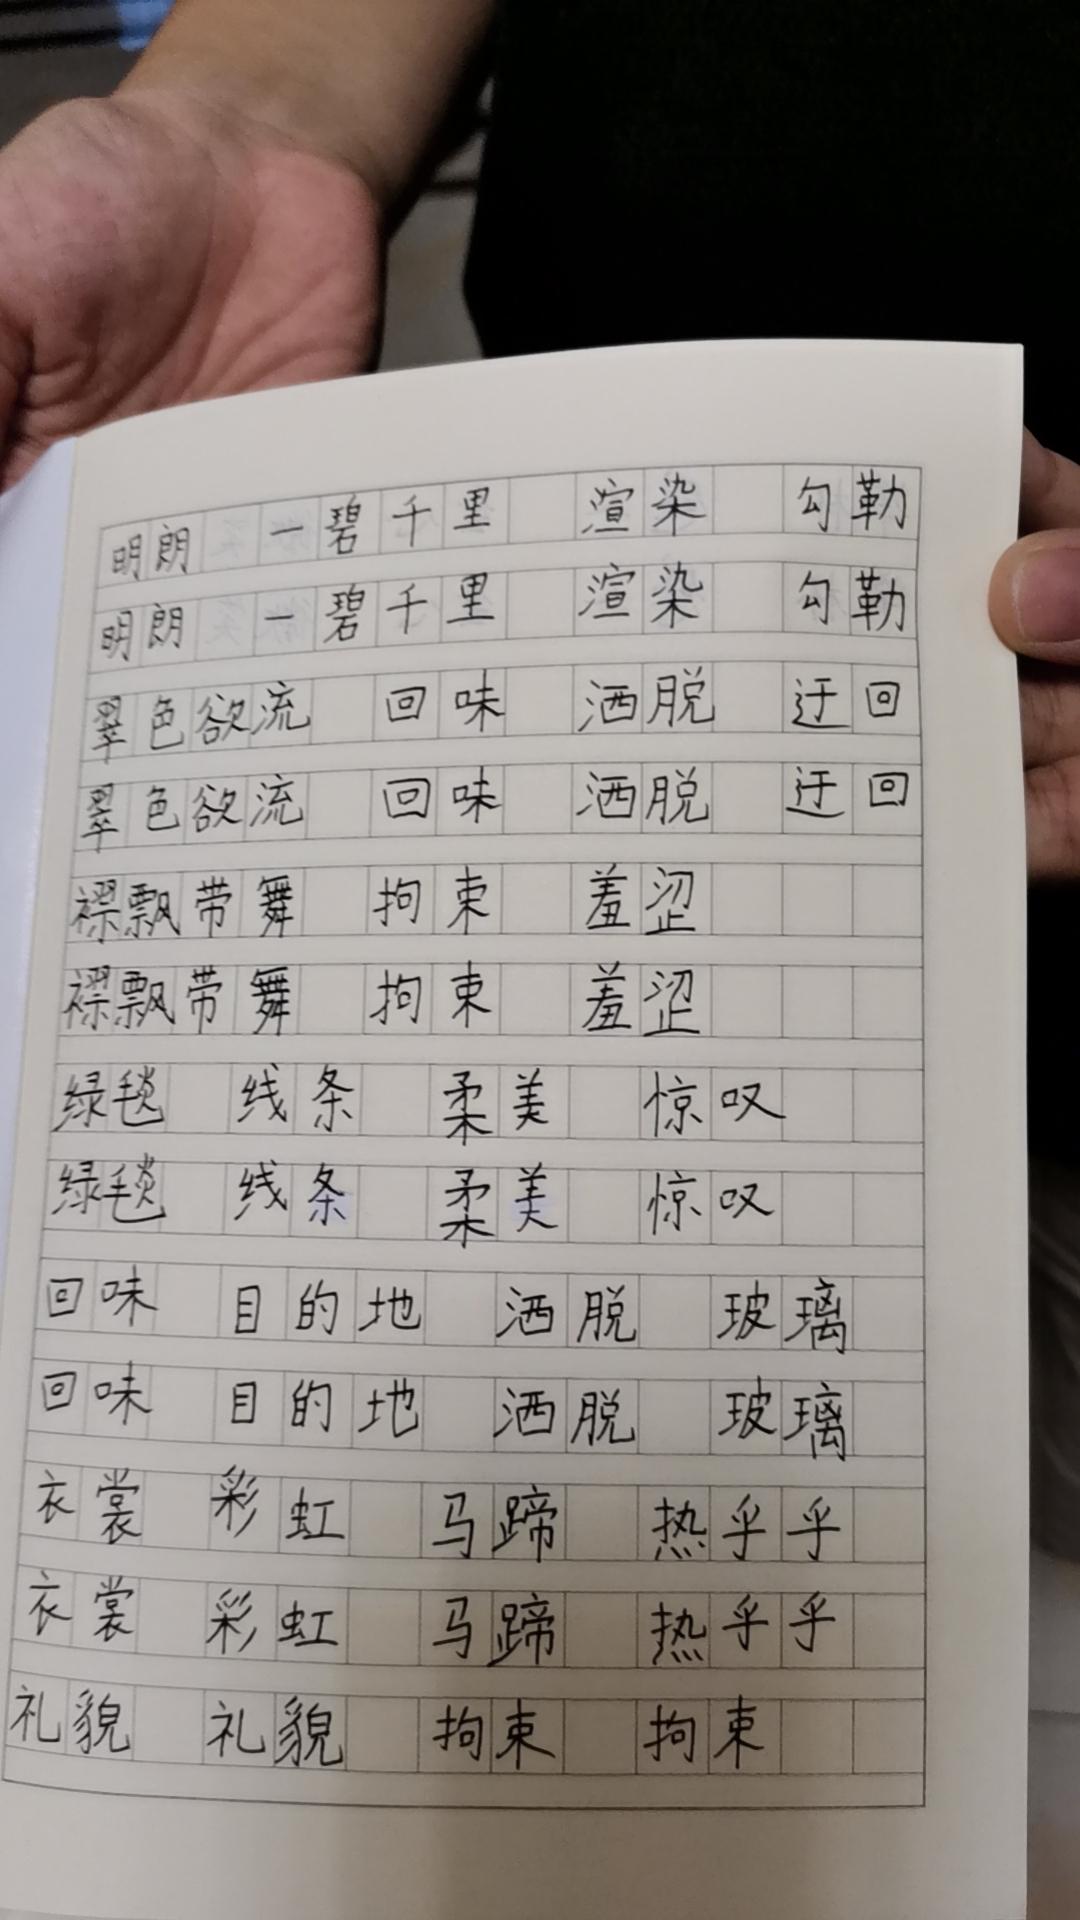 明朗 一碧千里 渲染 勾勒
明朗 一碧千里 渲染 勾勒
翠色欲流 回味 洒脱 迂回
翠色欲流 回味 洒脱 迂回
襟飘带舞 拘束 羞涩
襟飘带舞 拘束 羞涩
绿毯 线条 柔美 惊叹
绿毯 线条 柔美 惊叹
回味 目的地 洒脱 玻璃
回味 目的地 洒脱 玻璃
衣裳 彩虹 马蹄 热乎乎
衣裳 彩虹 马蹄 热乎乎
礼貌 礼貌 拘束 拘束